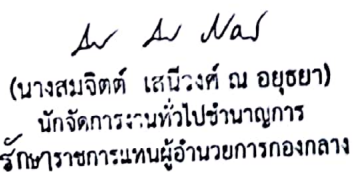 (นางสมจิตต์ เสนีวงศ์ ณ อยุธยา)
นักจัดการงานทั่วไปชำนาญการ
รักษาราชการแทนผู้อำนวยการกองกลาง